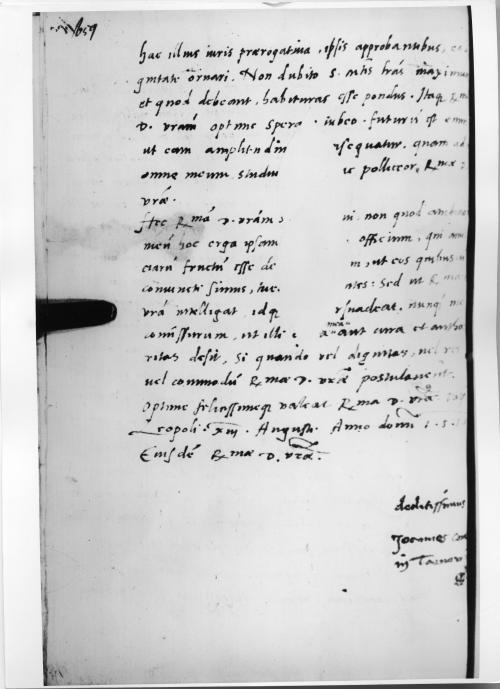 hac illius iuris prærogatiua, ipsis approbantibus,
gnitate ornari. Non dubito S. mtis lras maximum
et quod debeant, habituras esse pondus. Itaq R
D. vram optime spera iubeo. futurū est enim
ut eam amplitudin rsequatur. quam ad
omne meum studiu polliceor, Rmæ
vræ.
Rmā D. vram, non quod
meū hoc erga ipsam officium, qui
clarū fructū esse de m, ut eos quibus
coniuncti simus, tue ntes: Sed ut Rma
vrā intelligat, idq rsuadeat. nunq me
comissurum, ut illi mea aut cura et autho
ritas desit, si quando vel dignitas, vel
vel commodū Rmæ D. vræ postulauerit.
Optime felicissimeq valeat Rma D. vra.
Leopoli. xiii. Augusti. Anno domi 1.5.
Eiusdē Rmæ D. vræ.
deditissimus
Joannes Com
in Tarnow